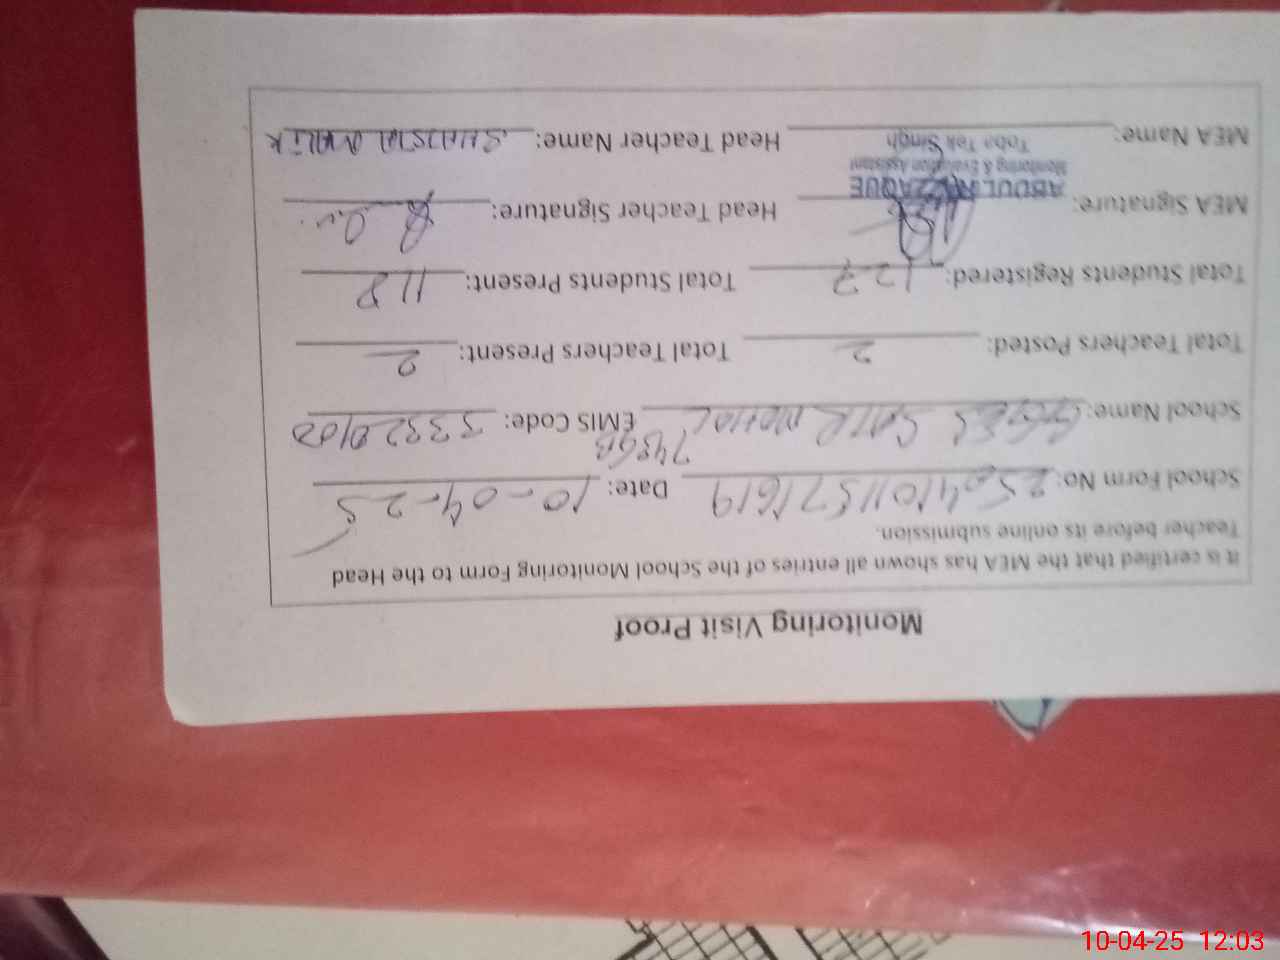 Monitoring Visit Proof
It is certified that the MEA has shown all entries of the School Monitoring Form to the Head
Teacher before its online submission.
School Form No: 25041011571619 Date: 10-04-25
School Name: 748GB EMIS Code: 33320100
Total Teachers Posted: 2 Total Teachers Present: 2
Total Students Registered: 127 Total Students Present: 118
MEA Signature: Head Teacher Signature:
ABDUL RAZZAQUE
Monitoring & Evaluation Assistant
Toba Tek Singh
MEA Name: Head Teacher Name: SHAISTA MALIK
10-04-25 12:03